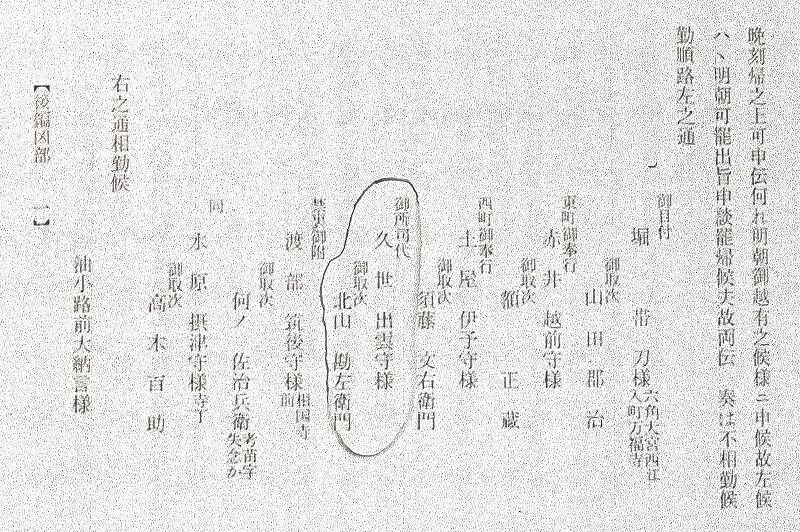 晩刻帰之上可申伝何れ明朝御越有之候様ニ申候故左候
ハヽ明朝可罷出旨申談罷帰候夫故両伝　奏は不相勤候
勤順路左之通
御目付
堀　帯刀様 六角大宮西江入町万福寺
御取次
山田郡治
東町御奉行
赤井越前守様
御取次
額　正蔵
西町御奉行
土屋伊予守様
御取次
須藤文右衛門
御所司代
久世出雲守様
御取次
北山勘左衛門
禁裏御附
渡部筑後守様 相国寺前
御取次
何ノ佐治兵衛 考苗字失念か
同
水原摂津守様 寺丁
御取次
高木百助
右之通相勤候
油小路前大納言様
【後編凶部　一】